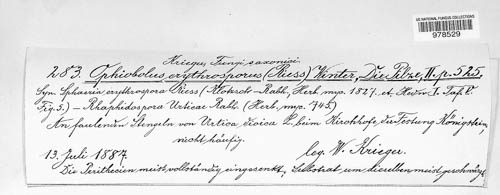 US NATIONAL FUNGUS COLLECTIONS
978529
Krieger, Fungi saxonici.
283. Ophiobolus erythrosporus (Riess) Winter, Die Pilze, II. p. 525.
Syn. Sphaeria erythrospora Riess (Klotzsch-Rabh., Herb. myc. 1827. et Hedw. I. Taf. V.
Fig. 5.) – Rhaphidospora Urticae Rabh. (Herb. myc. 745)
An faulenden Stengeln von Urtica dioica L. beim Kirchhofe der Festung Königstein,
nicht häufig.
13. Juli 1887. leg. W. Krieger.
Die Perithecien meist vollständig eingesenkt, Substrat um dieselben meist geschwärzt.